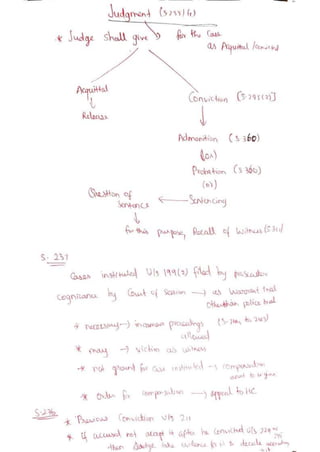 Judgment (S 235/(1)
* Judge shall give → for the case
as Acquittal /convict
Acquittal
Release
Conviction [S-235(2)]
Admonition (S 360)
(or)
Probation (S 360)
(or)
Question of sentence ← Sentencing
for this purpose, Recall of witness (S 311)
S. 237
Cases instituted U/s 199(2) filed by prosecutor
cognizance by Court of Session → as warrant trial
otherthan police trial
* necessary → incamera proceedings
allowed
* may → victim as witness
* not ground for case instituted → compensation
* Order for compensation → appeal to HC
S-236
* Previous conviction U/s 211
* if accused not accept it after he convicted U/s 229
then Judge take evidence for it & decide